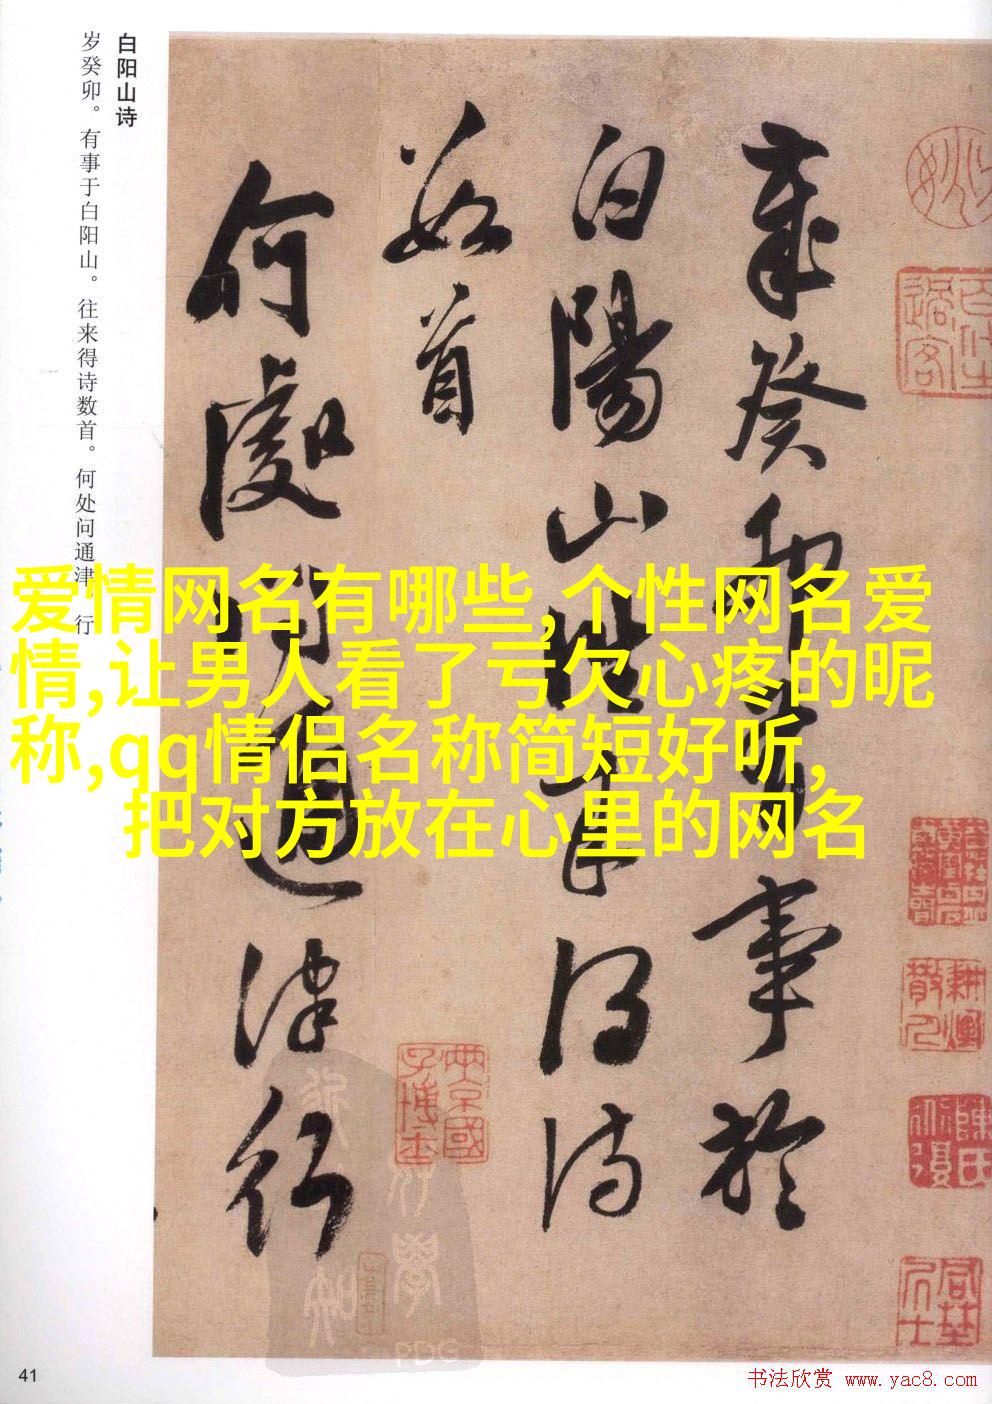 白阳山诗
岁癸卯。有事于白阳山。往来得诗数首。何处问通津。行
歲癸卯有事於
白陽山往来得诗
数首
何處問通津行
爱情网名有哪些,个性网名爱
情,让男人看了亏欠心疼的昵
称,qq情侣名称简短好听,
把对方放在心里的网名
41
书法欣赏 www.yac8.com